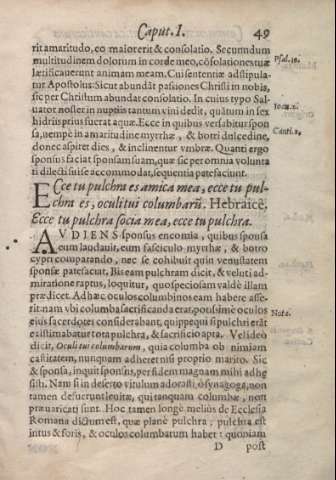 Caput. I. 49
rit amaritudo, eo maior erit & consolatio. Secundum
multitudinem dolorum in corde meo, cõsolationes tuæ
lætificauerunt animam meam. Cui sententiæ adstipula-
tur Apostolus: Sicut abundãt passiones Christi in nobis,
sic per Christum abundat consolatio. In cuius typo Sal-
uator noster in nuptiis tantum vini dedit, quãtum in sex
hidriis prius fuerat aquæ. Ecce in quibus versabitur spon
sa, nempè in amaritudine myrrhæ, & botri dulcedine,
donec aspiret dies, & inclinentur vmbræ. Quanti ergo
sponsus faciat sponsam suam, quæ sic per omnia volunta
ti dilecti sui se accommodat, sequentia patefaciunt.
Psal. 93.
Ioan. 2.
Canti. 2,
Ecce tu pulchra es amica mea, ecce tu pul-
chra es, oculi tui columbarũ. Hebraicè.
Ecce tu pulchra socia mea, ecce tu pulchra.
AVDIENS sponsus encomia, quibus sponsa
eum laudauit, eum fasciculo myrrhæ, & botro
cypri comparando, nec se cohibuit quin venustatem
sponsæ patefaciat. Bis eam pulchram dicit, & veluti ad-
miratione raptus, loquitur, quo speciosam valdè illam
prædicet. Adhæc oculos columbinos eam habere asse-
rit nam vbi columba sacrificanda erat, potissimè oculos
eius sacerdotes considerabant, quippe qui si pulchri erãt
existimabatur tota pulchra, & sacrificio apta. Vel ideò
dicit, Oculi tui columbarum, quia columba ob nimiam
castitatem, nunquam adheret nisi proprio marito. Sic
& sponsa, inquit sponsus, per fidem magnam mihi adhę
sisti. Nam si in deserto vitulum adorasti, ô synagoga, non
tamen defuerunt leuitæ, qui tanquam columbæ, non
præuaricati sunt. Hoc tamen longè meliùs de Ecclesia
Romana dictum est, quæ planè pulchra; pulchra est
intus & foris, & oculos columbarum habet: quoniam
Note.
D post